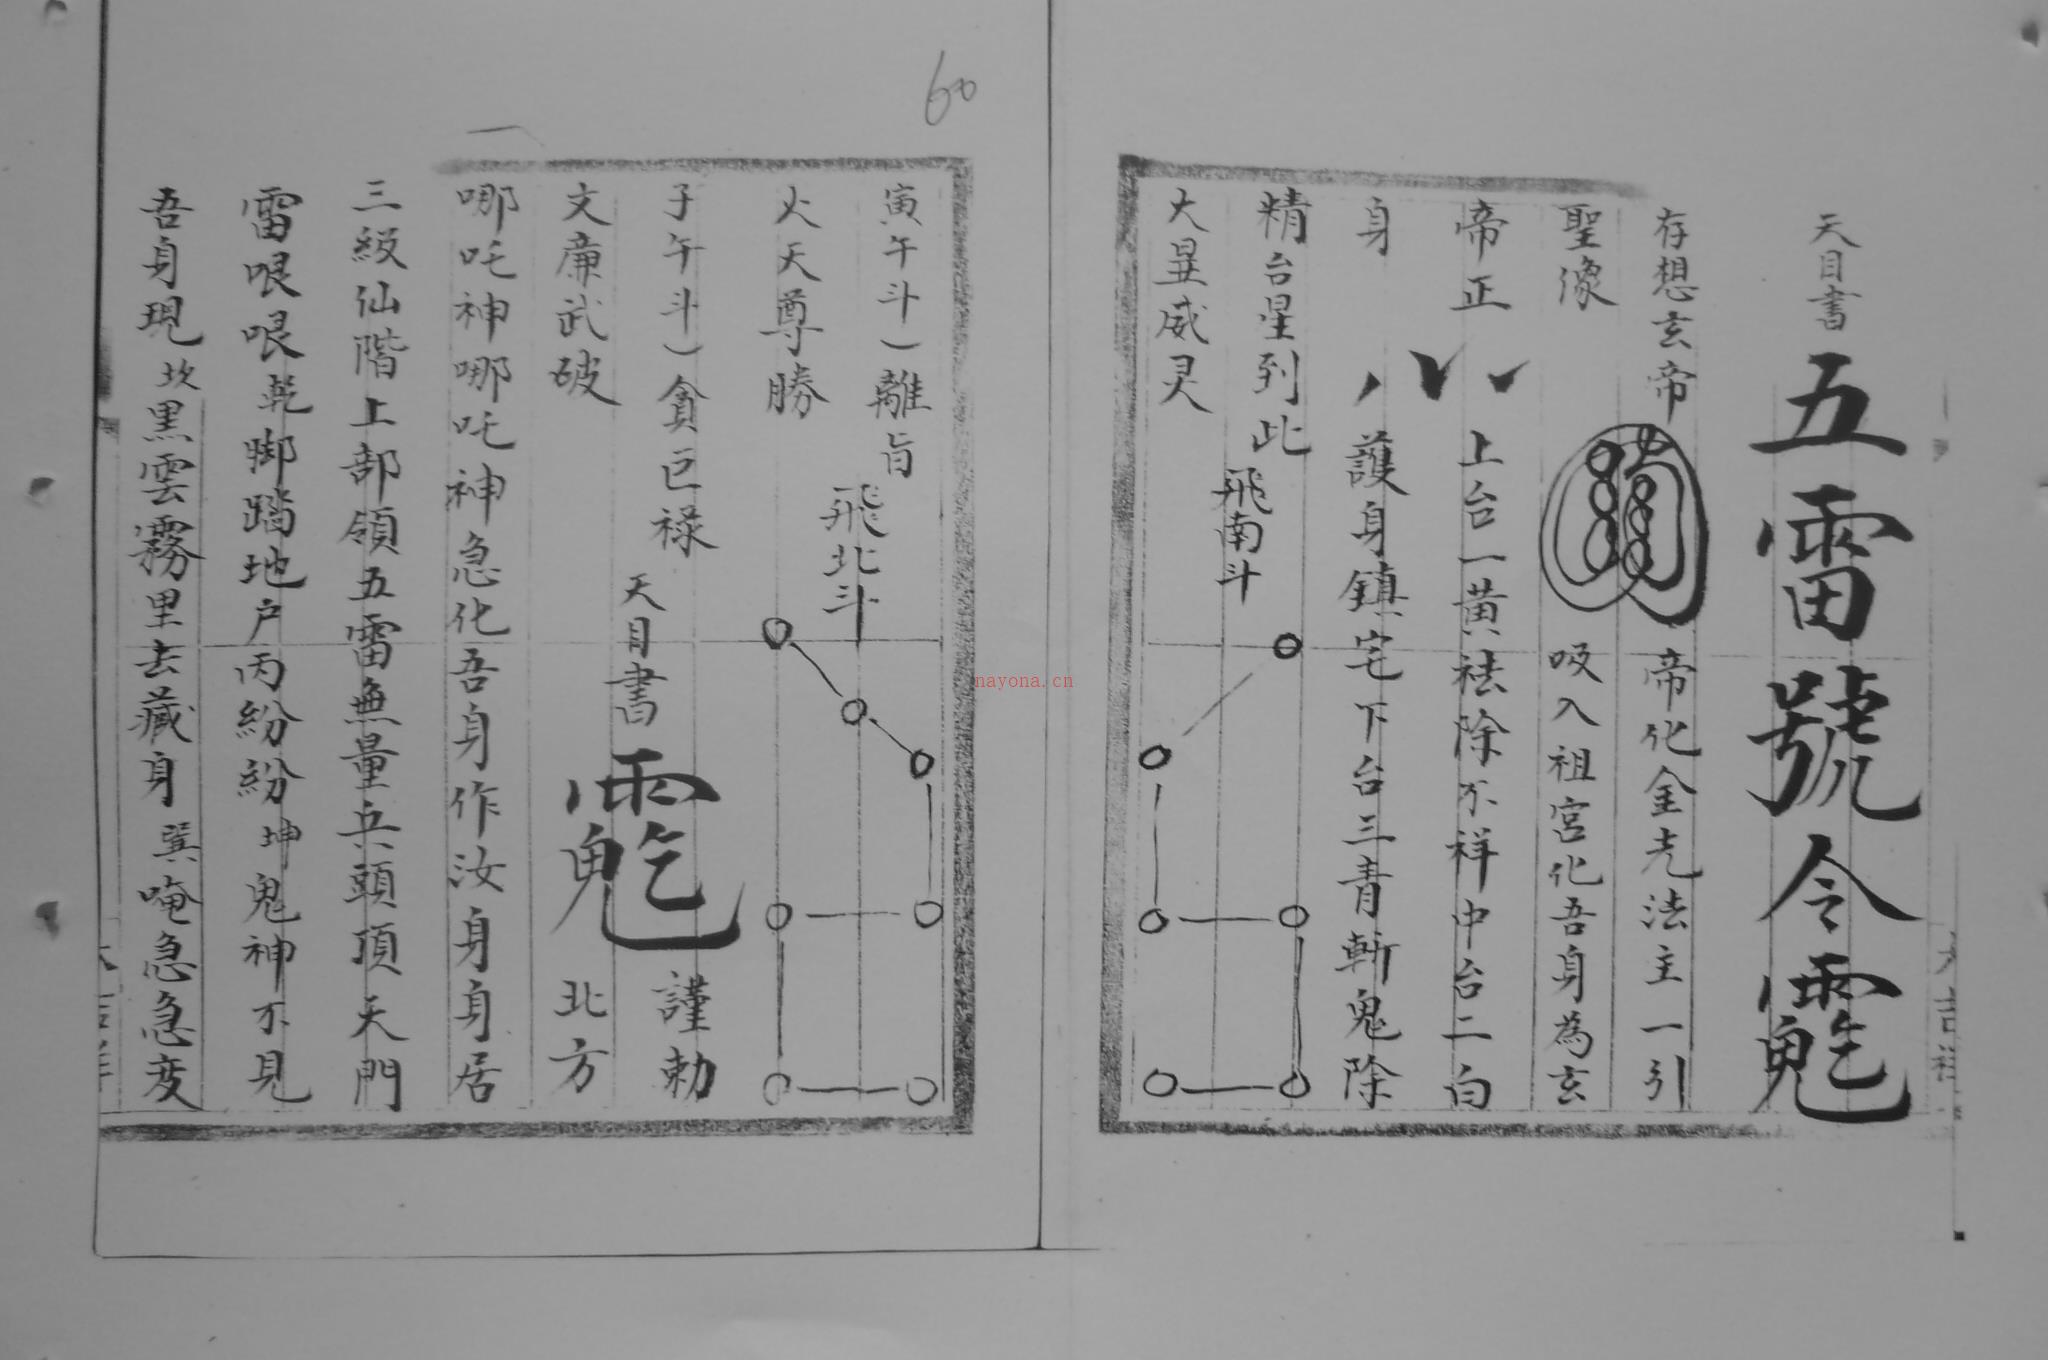 天目書 五雷號令
存想玄帝 帝化金光法主一引
聖像 吸入祖宮化吾身為玄
帝正 上台一黃祛除不祥中台二白
身 護身鎮宅下台三青斬鬼除
精台星到此 飛南斗
大顯威灵
寅午斗）離旨 飛北斗
火天尊勝
子午斗）貪巨禄 天目書 謹勅
文廉武破 北方
哪吒神哪吒神急化吾身作汝身身居
三級仙階上部領五雷無量兵頭頂天門
雷哏哏乾脚踏地户丙紛紛坤鬼神不見
吾身現坎黑雲霧里去藏身巽唵急急变
60
大吉祥
nayona.cn